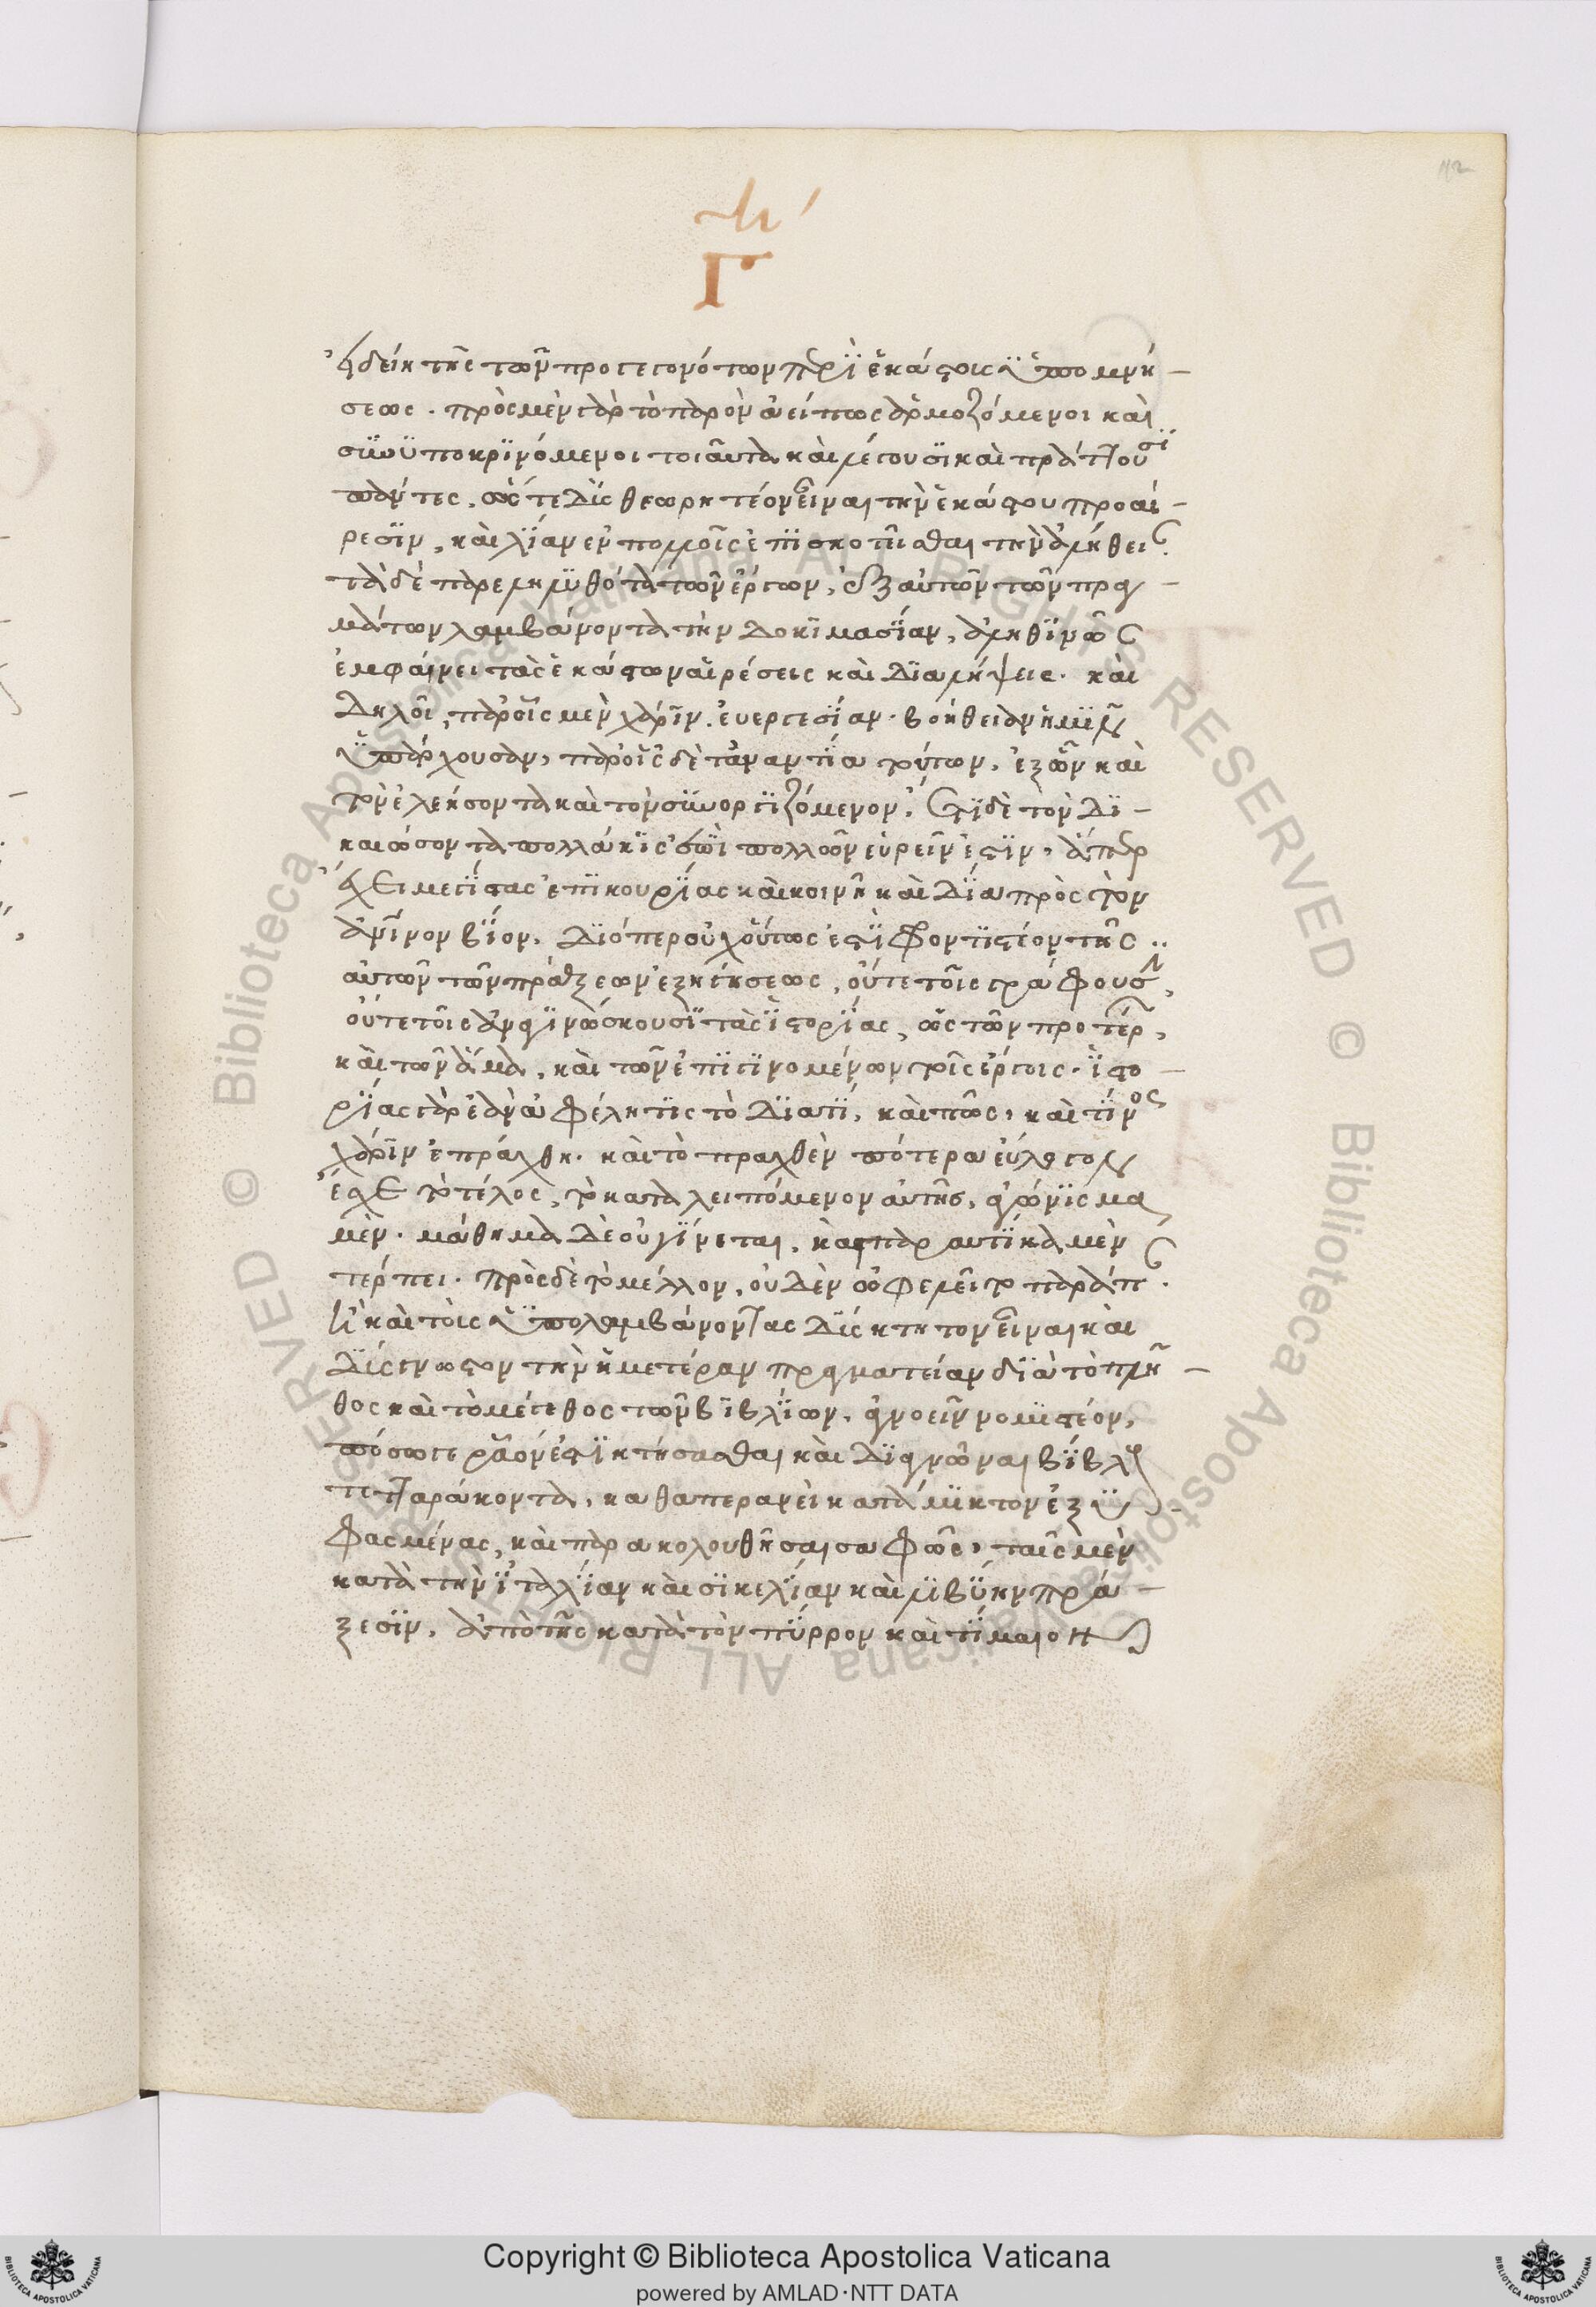 γ
Γ
ἡ δεῖ κ τῆς τῶν προγεγονότων περὶ ἑκάστοις ὑπομνή-
σεως. πρὸς μὲν γὰρ τὸ παρὸν ἀεί πως ἁρμοζόμενοι καὶ
συνϋποκρϊνόμενοι τοιαῦτα καὶ λέγουσϊ καὶ πράττουσϊ
πάντες. ὥς τε δϊς θεωρητέον εἶναι τὴν ἑκάστου προαί-
ρεσϊν, καὶ λΐαν ἐν πολλοῖς ἐπϊσκοτῆσθαι τὴν ἀλήθειαν.
τὰ δὲ παρεληλϋθότα τῶν ἔργων, ἐξ αὐτῶν τῶν πραγ-
μάτων λαμβάνοντα τὴν δοκϊμασΐαν, ἀληθϊνῶς
ἐμφαίνει τὰς ἑκάστων αἱρέσεις καὶ δϊαλήψεις. καὶ
δηλοῖ, παρ' οἷς μὲν χάρϊν. ἐυεργεσΐαν. βοήθειαν ἡμῖν
ὑπάρχουσαν, παρ' οἷς δὲ τἀναντΐα τούτων. ἐξ ὧν καὶ
τὸν ἐλεήσοντα καὶ τὸν συνοργϊζόμενον, ἔτϊ δὲ τὸν δϊ-
καιώσοντα πολλάκϊς ἐπὶ πολλῶν εὑρεῖν ἔστϊν, ἅπερ
ἔχει μεγΐστας ἐπϊκουρΐας καὶ κοινῆ καὶ δΐα πρὸς τὸν
ἀνΐνον βΐον. δϊόπερ οὐχ οὕτως ἐστὶ φροντϊστέον τῆς
αὐτῶν τῶν πράξεων ἐξηγήσεως, οὔτε τοῖς γράφουσιν,
οὔτε τοῖς ἀναγϊνώσκουσϊ τὰς ἱστορΐας, ὡς τῶν προτέρων,
καὶ τῶν ἅμα, καὶ τῶν ἐπϊγϊνομένων τοῖς ἔργοις. ἱστο-
ρΐας γὰρ ἐὰν ἀφέλη τϊς τὸ δϊατΐ, καὶ πῶς, καὶ τΐνος
χάρϊν ἐπράχθη. καὶ τὸ πραχθὲν πότερα εὔλογον
ἔσχε τὸ τέλος, τὸ καταλειπόμενον αὐτῆς, ἀγώνϊσμα
μὲν. μάθημα δὲ οὐ γΐνεται. καὶ παραυτΐκα μὲν
τέρπει. πρὸς δὲ τὸ μέλλον, οὐδὲν ὠφελεῖ τὸ παράπαν.
ἧ καὶ τοὺς ὑπολαμβάνοντας δΐσκτητον εἶναι καὶ
δΐσγνωστον τὴν ἡμετέραν πραγματείαν δϊὰ τὸ πλῆ-
θος καὶ τὸ μέγεθος τῶν βϊβλΐων, ἀγνοεῖν νομϊστέον,
πόσω γε ρᾶον ἐστϊ κτήσασθαι καὶ δϊαγνῶναι βΐβλους
τετταράκοντα, καθαπερανεὶ κατὰ μΐτον ἐξϋ-
φασμένας, καὶ παρακολουθῆσαι σαφῶς, ταῖς μὲν
κατὰ τὴν ἰταλΐαν καὶ σϊκελΐαν καὶ λϊβΰην πρά-
ξεσϊν, ἀπὸ τῆς κατὰ τὸν πΰρρον καὶ τΐμαιον